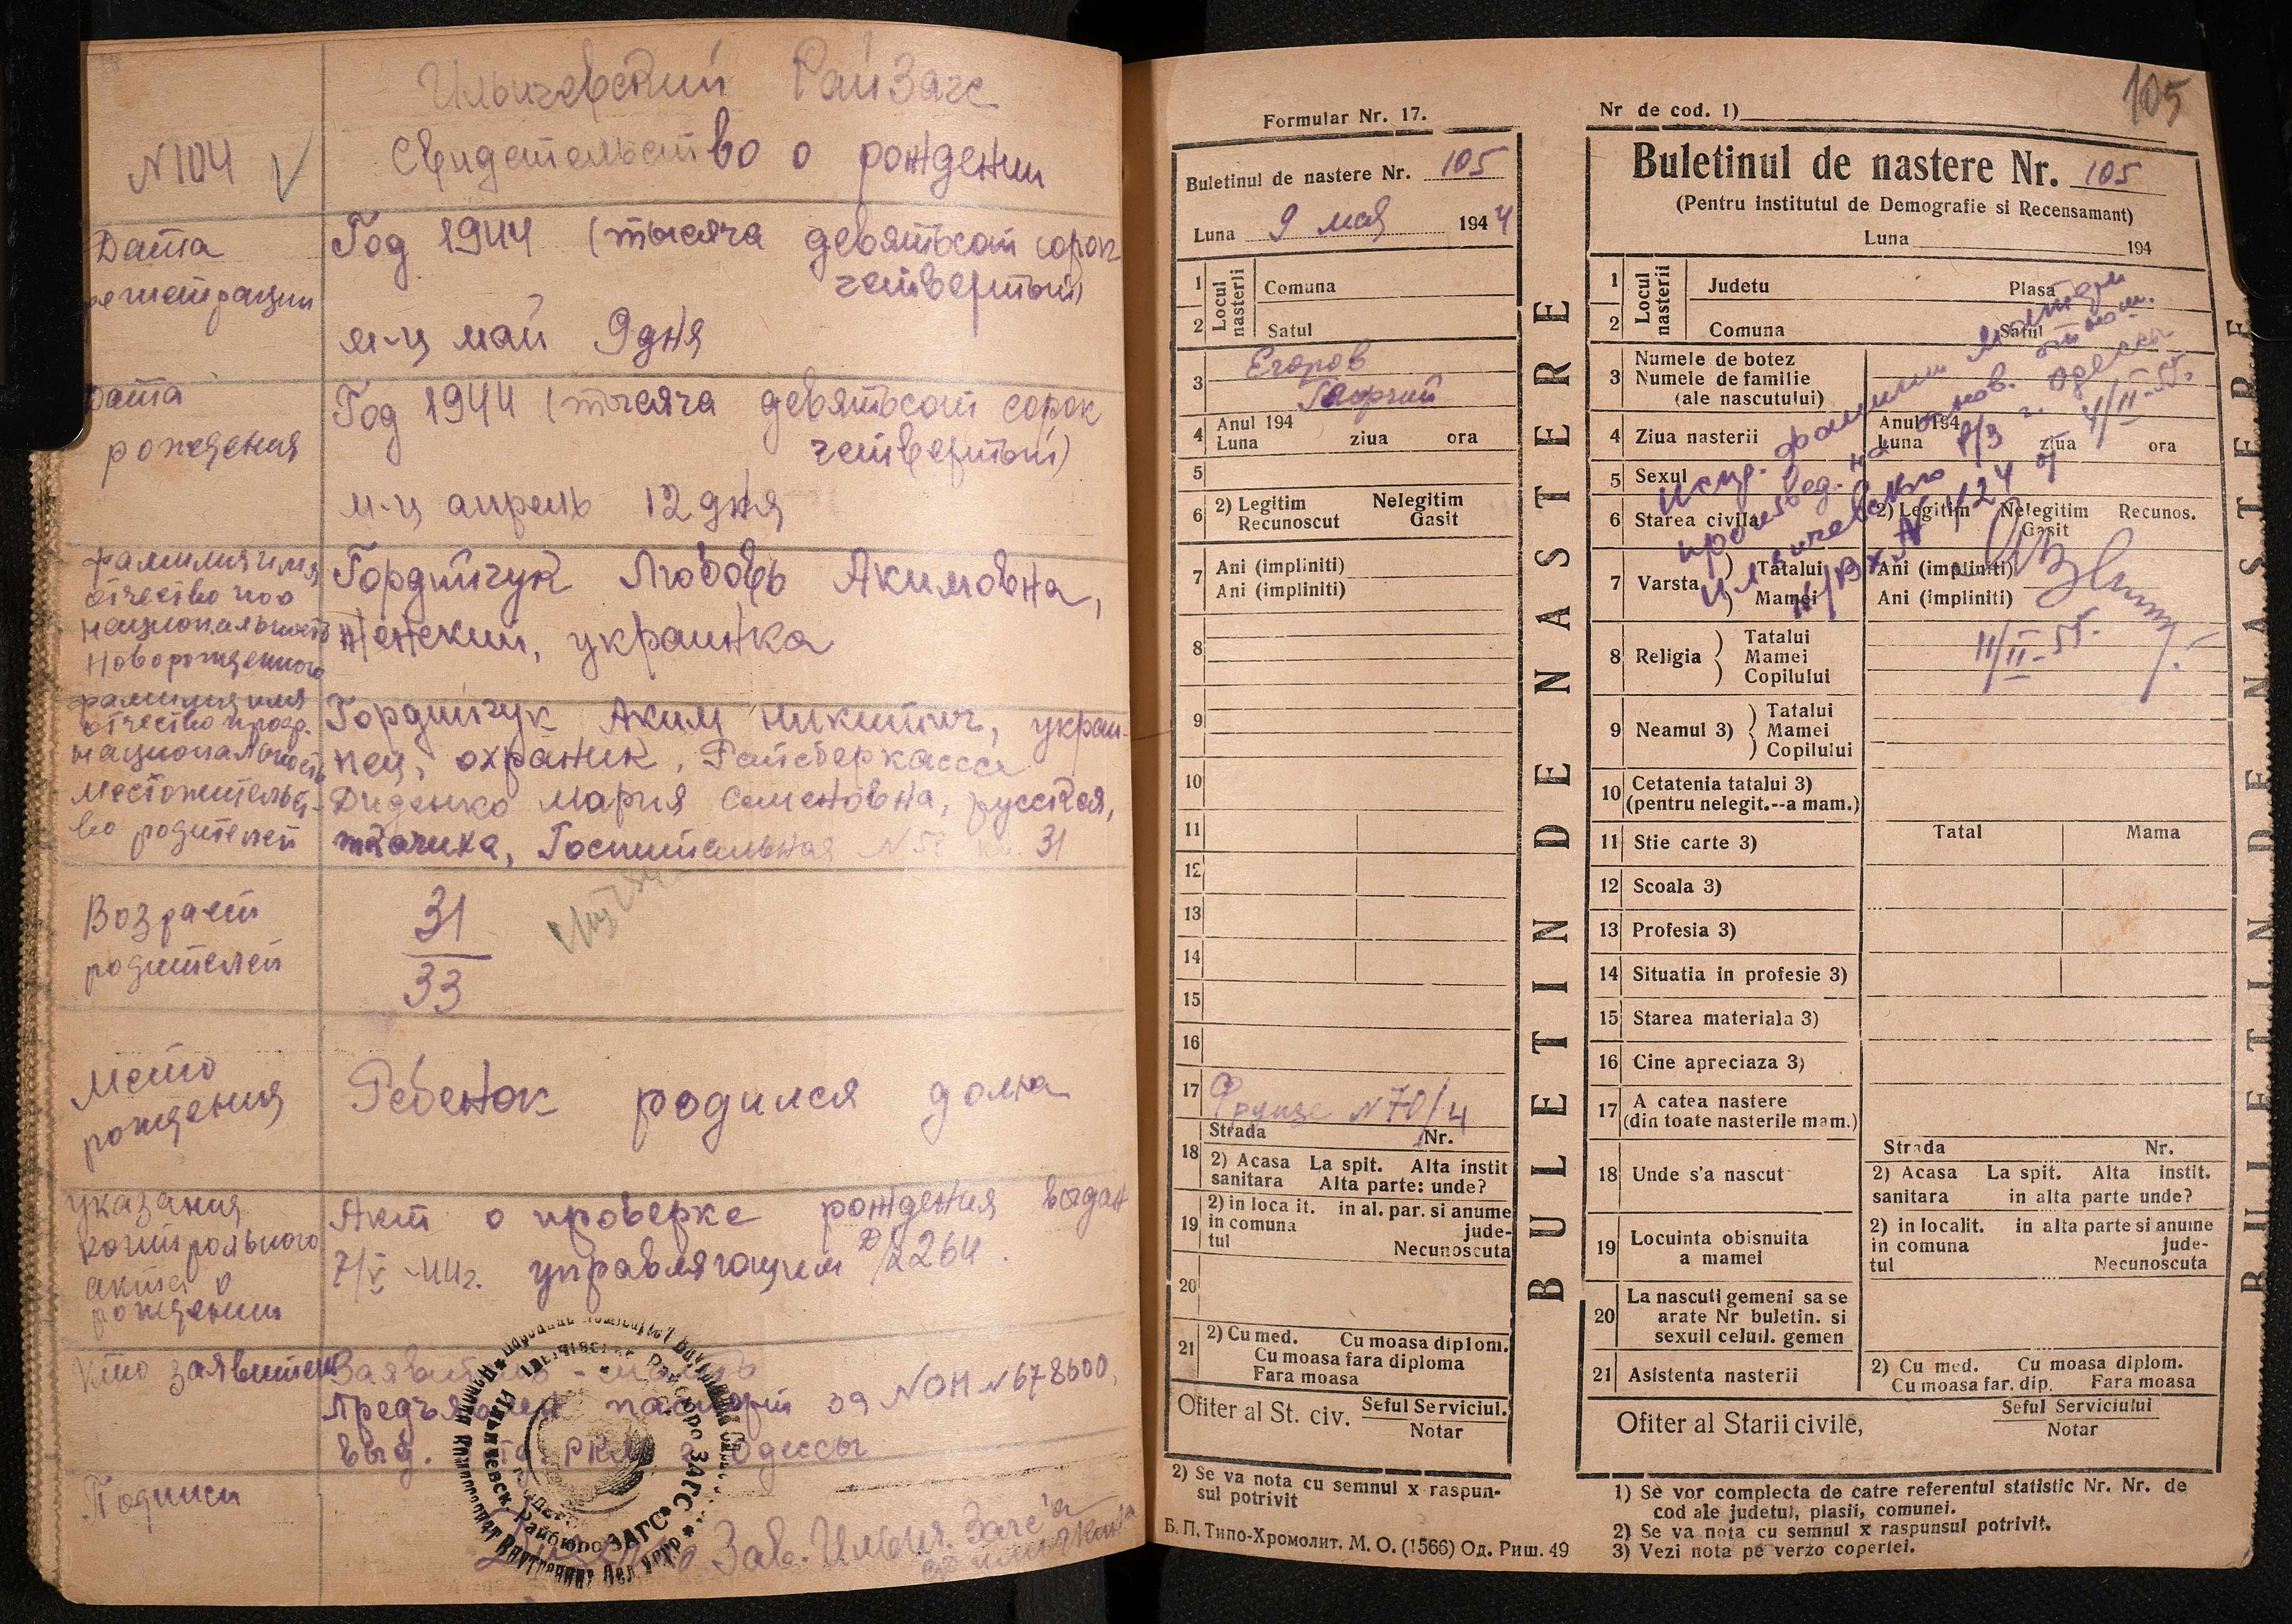 Ильичевский РайЗагс
N104
Свидетельство о рождении
Дата регистрации
Год 1944 (тысяча девятьсот сорок
четвертый)
м-ц май 9 дня
Дата
рождения
Год 1944 (тысяча девятьсот сорок
четвертый)
м-ц апрель 12 дня
фамилия имя
отчество пол
национальность
новорожденного
Гордийчук Любовь Акимовна,
женский, украинка
фамилия имя
отчество проф.
национальность
местожительст-
во родителей
Гордийчук Аким Никитич, украи-
нец, охраник, Райсберкасса
Диденко Мария Семеновна, русская,
ткачиха, Госпитальная 31
Возраст
родителей
31
33
Место
рождения
Ребенок родился дома
Указания
контрольного
акта о
рождении
Акт о проверке рождения выдан
7/V-44г. управляющим д/2264.
Кто заявитель
Заявитель - мать
Предъявлен паспорт N678600,
выд. РКМ г. Одессы
Подписи
Зав. Ильич. Загс'а
105
Formular Nr. 17.
Buletinul de nastere Nr. 105
Luna 9 мая 1944
1 Locul nasterii Comuna
2 Satul
3 Егоров
Георгий
4 Anul 194
Luna ziua ora
5
6 2) Legitim Nelegitim
Recunoscut Gasit
7 Ani (impliniti)
Ani (impliniti)
8
9
10
11
12
13
14
15
16
17 Фрунзе N70/4
Strada Nr.
18 2) Acasa La spit. Alta instit
sanitara Alta parte: unde?
19 2) in loca it. in al. par. si anume
in comuna jude-
tul Necunoscuta
20
21 2) Cu med. Cu moasa diplom.
Cu moasa fara diploma
Fara moasa
Ofiter al St. civ. Seful Serviciul.
Notar
2) Se va nota cu semnul x raspun-
sul potrivit
Б. П. Типо-Хромолит. М. О. (1566) Од. Риш. 49
BULETIN DE NASTERE
Nr de cod. 1)
Buletinul de nastere Nr. 105
(Pentru institutul de Demografie si Recensamant)
Luna 194
1 Locul nasterii Judetu Plasa
2 Comuna Satul
3 Numele de botez
Numele de familie
(ale nascutului)
4 Ziua nasterii Anul 194
Luna ziua ora
5 Sexul
6 Starea civila 2) Legitim Nelegitim Recunos.
Gasit
7 Varsta Tatalui Ani (impliniti)
Mamei Ani (impliniti)
8 Religia Tatalui
Mamei
Copilului
9 Neamul 3) Tatalui
Mamei
Copilului
10 Cetatenia tatalui 3)
(pentru nelegit.--a mam.)
11 Stie carte 3) Tatal Mama
12 Scoala 3)
13 Profesia 3)
14 Situatia in profesie 3)
15 Starea materiala 3)
16 Cine apreciaza 3)
17 A catea nastere
(din toate nasterile mam.)
18 Unde s'a nascut Strada Nr.
2) Acasa La spit. Alta instit.
sanitara in alta parte unde?
19 Locuinta obisnuita
a mamei
2) in localit. in alta parte si anume
in comuna jude-
tul Necunoscuta
20 La nascuti gemeni sa se
arate Nr buletin. si
sexuil celuil. gemen
21 Asistenta nasterii 2) Cu med. Cu moasa diplom.
Cu moasa far. dip. Fara moasa
Ofiter al Starii civile, Seful Serviciului
Notar
1) Se vor complecta de catre referentul statistic Nr. Nr. de
cod ale judetul, plasii, comunei.
2) Se va nota cu semnul x raspunsul potrivit.
3) Vezi nota pe verzo copertei.
г. Одессы
11/II-55.
BULETIN DE NASTERE